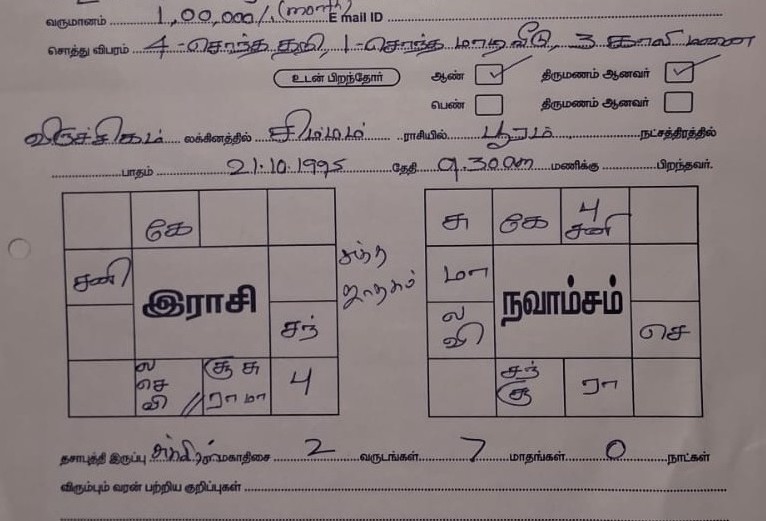 வருமானம் 1,00,000/. (month) E mail ID
சொத்து விபரம் 4 -சொந்த கதி, 1 -சொந்த மாடி வீடு, 3 காலி மனை
உடன் பிறந்தோர் ஆண் ✓ திருமணம் ஆனவர் ✓
பெண் திருமணம் ஆனவர்
விருச்சிகம் லக்கினத்தில் சிம்மம் ராசியில் பூரம் நட்சத்திரத்தில்
பாதம் 21.10.1995 தேதி 9.30am மணிக்கு பிறந்தவர்.
கே
சனி
இராசி
சந்
ல செ வி
சூ சு ரா மா
4
சுத்த ஜாதகம்
சு கே 4 சனி
மா
நவாம்சம்
ல வி
செ
சந் சூ
ரா
தசாபுத்தி இருப்பு சுக்கிரன் மகாதிசை 2 வருடங்கள் 7 மாதங்கள் 0 நாட்கள்
விரும்பும் வரன் பற்றிய குறிப்புகள்